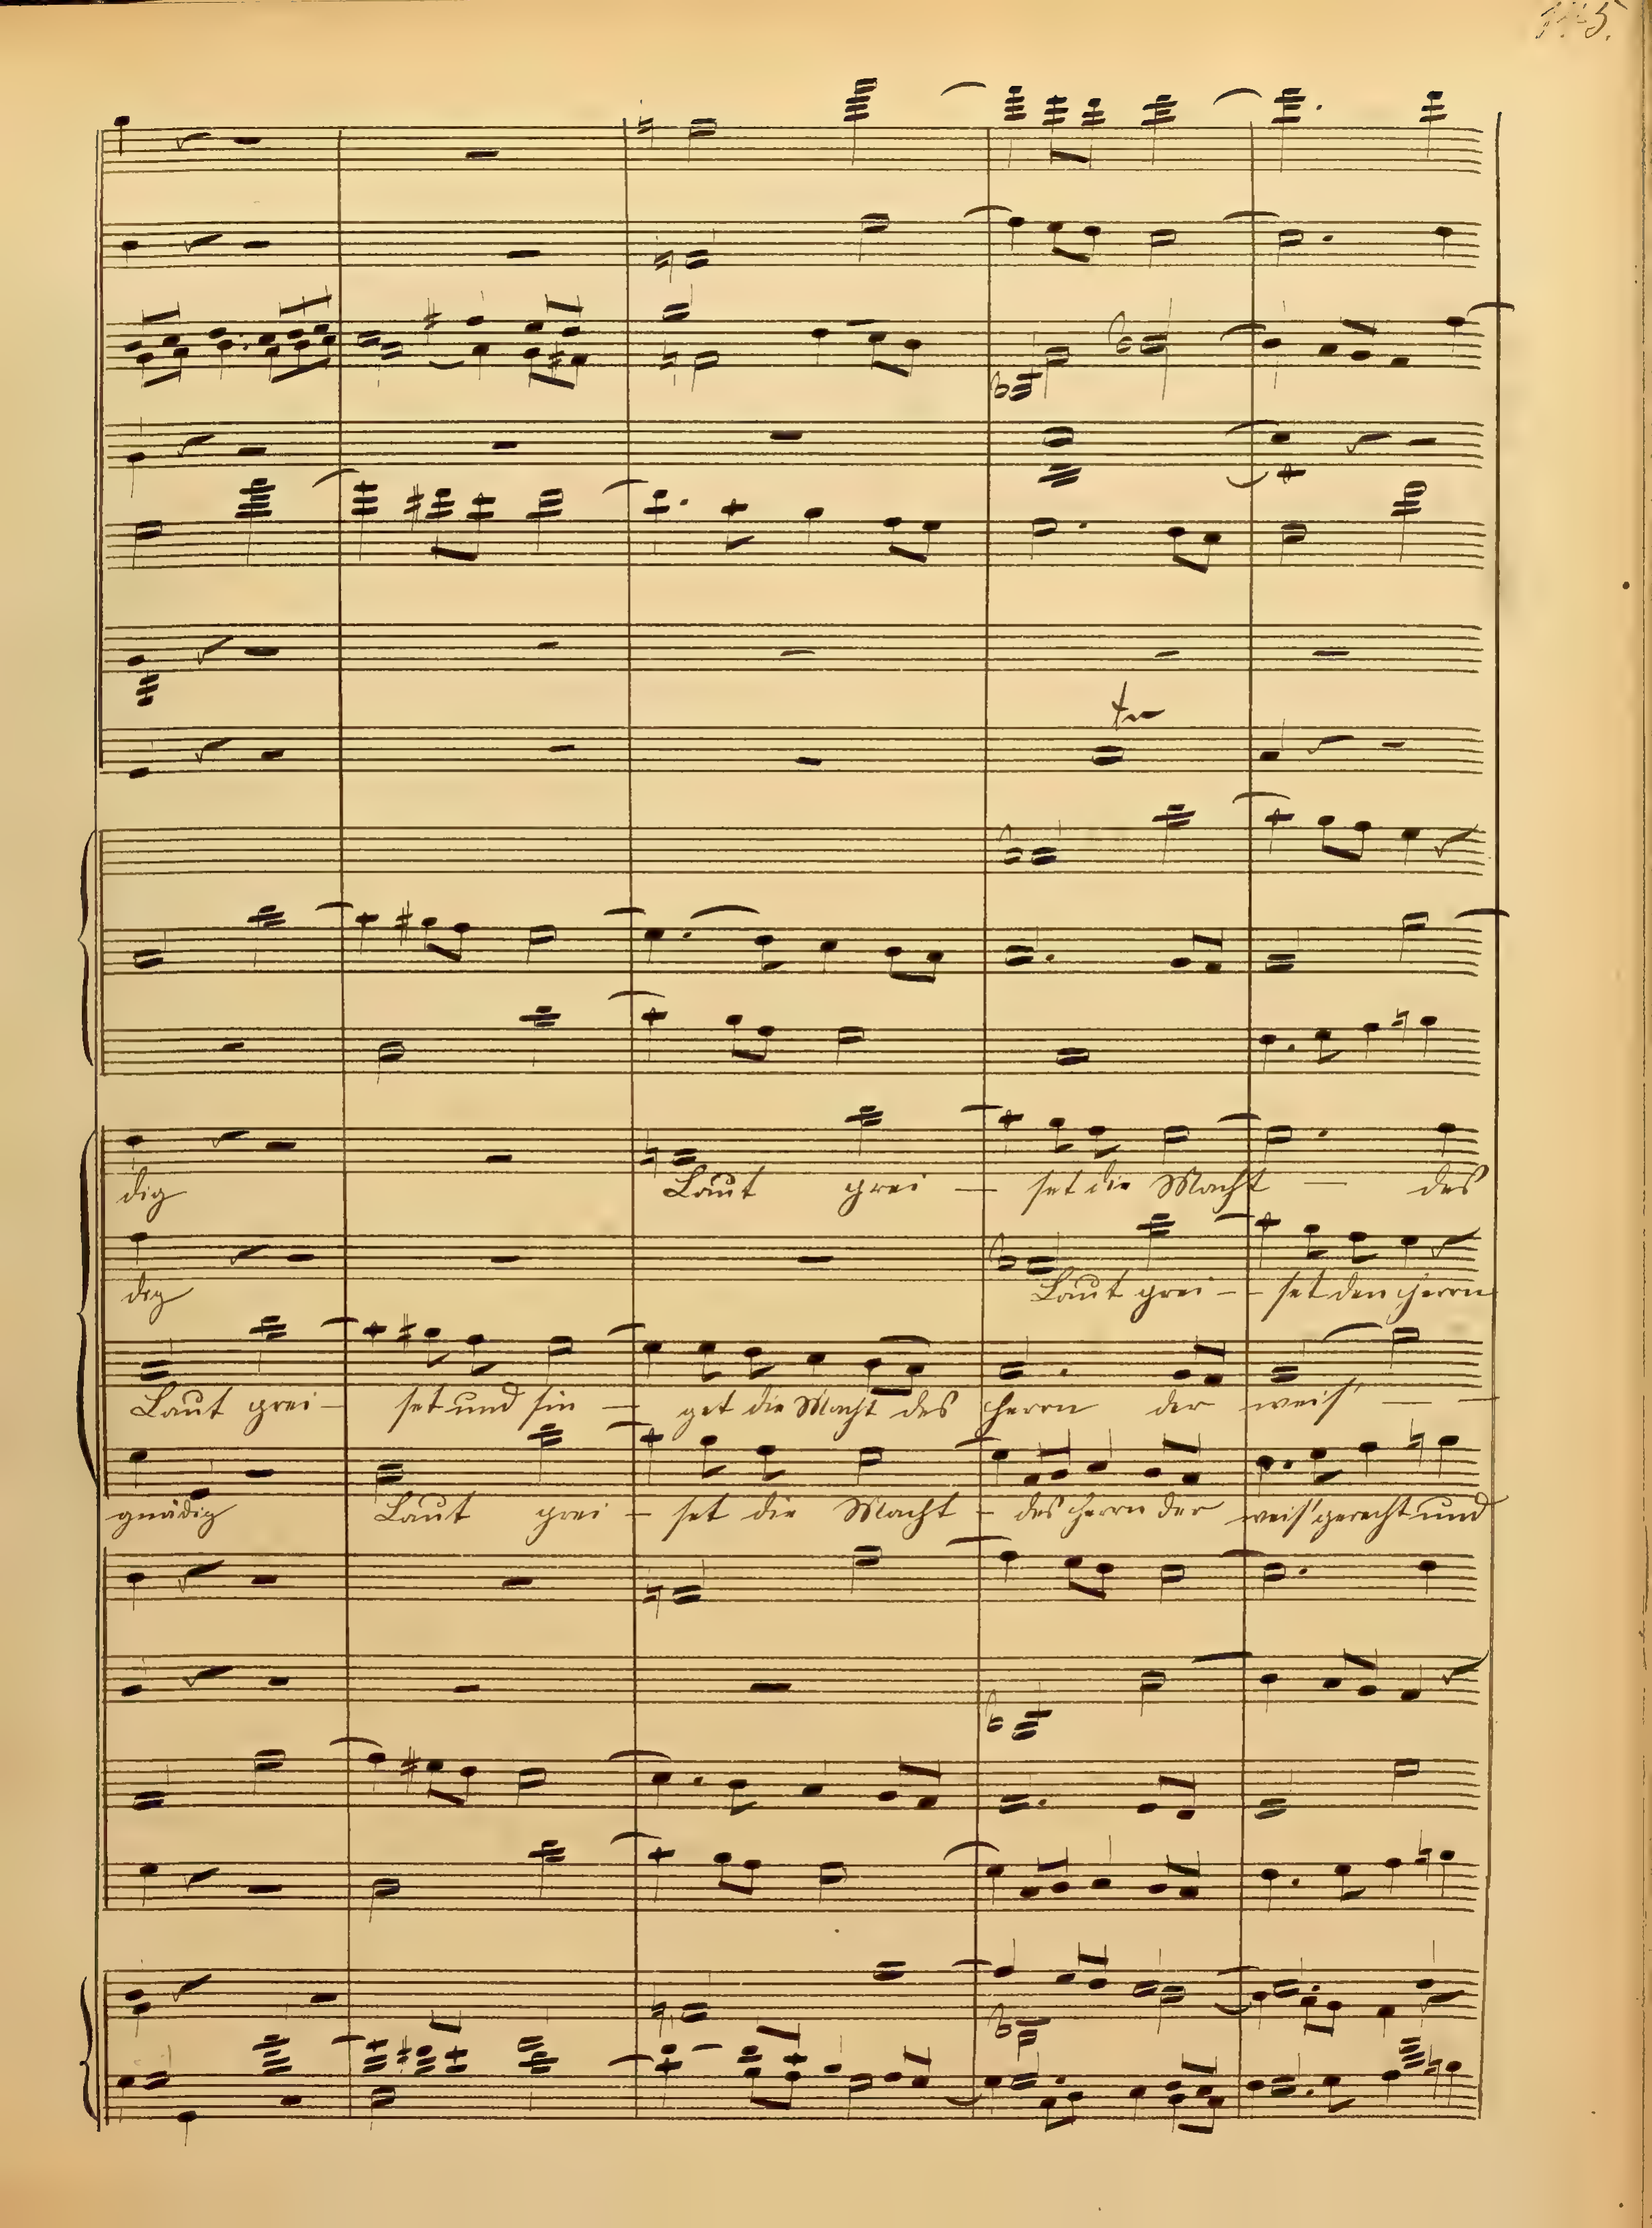 115.
tr
dig
Laut prei — set die Macht — des
dig
Laut prei - - set den Herrn
Laut prei — set und sin — get die Macht des Herrn der weis' — —
gnädig Laut prei — set die Macht — des Herrn der weis' gerecht und